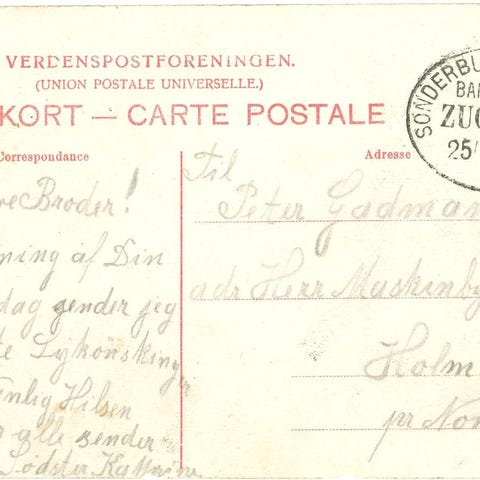 VERDENSPOSTFORENINGEN.
(UNION POSTALE UNIVERSELLE.)
KORT — CARTE POSTALE
Correspondance
Adresse
SONDERBU
BA
ZUG
25/
ve Broder!
ning af Din
dag sender jeg
te Lykönskinger
enlig Hilsen
r alle sender
Södster Kathrine
Til
Peter Gadman
adr Herr Maskinby
Holm
pr Nor